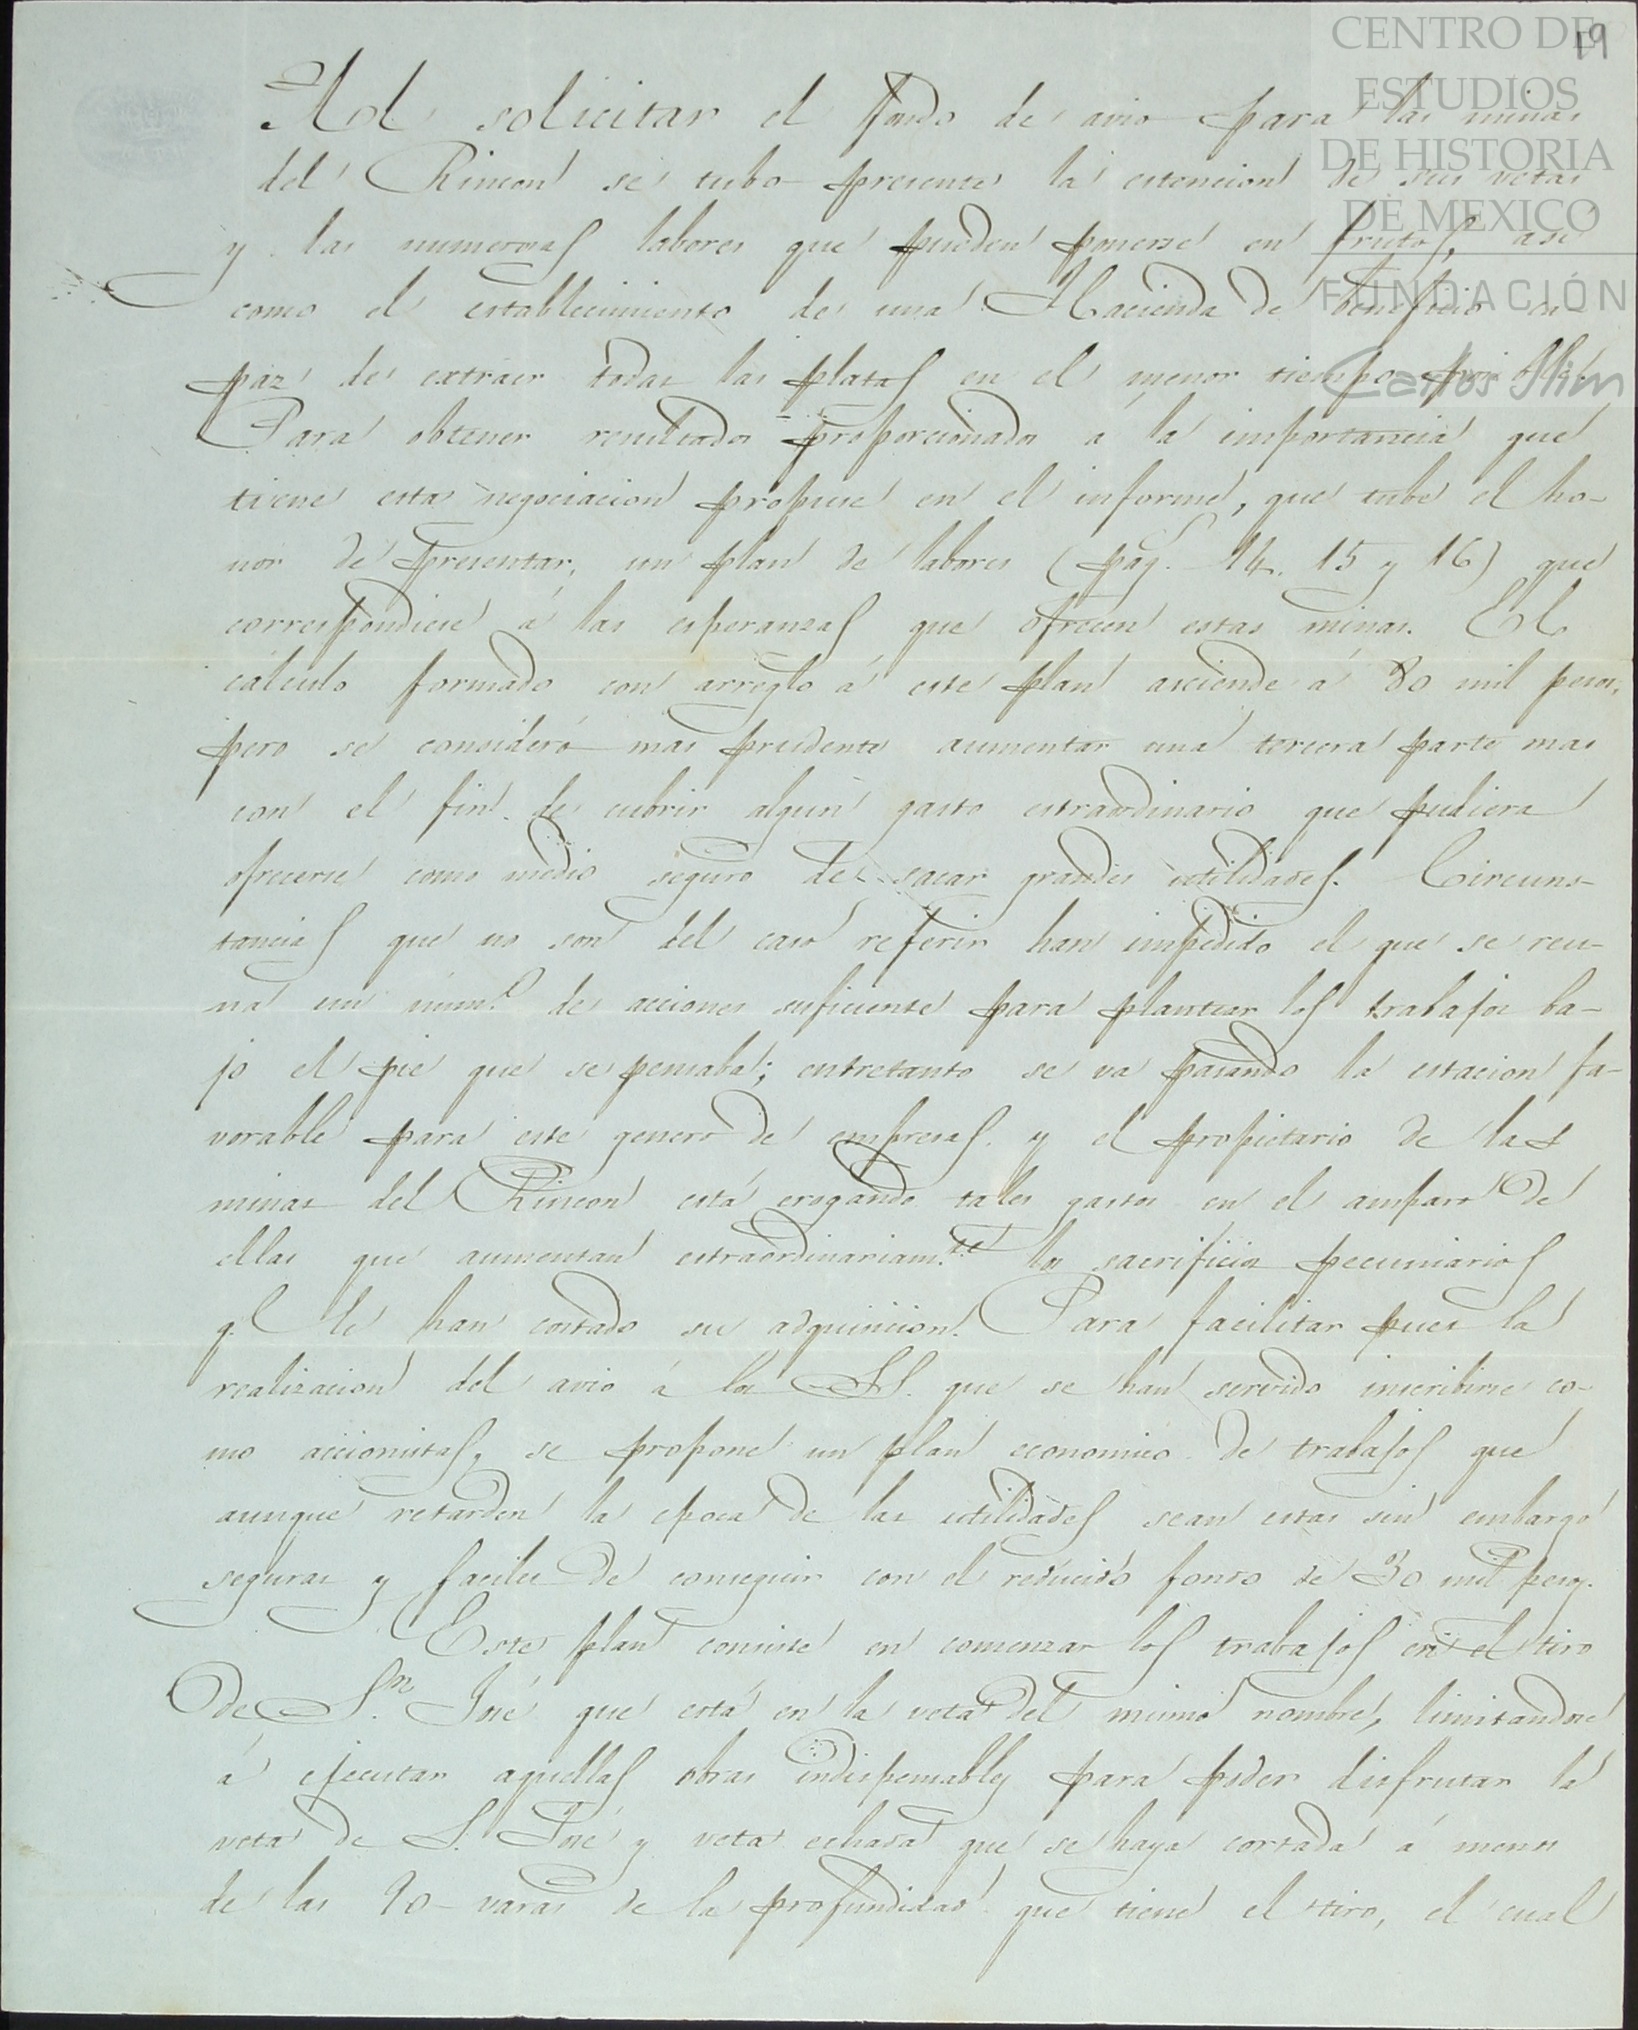 19
CENTRO DE
ESTUDIOS
DE HISTORIA
DE MEXICO
FUNDACIÓN
Carlos Slim
Al solicitar el fondo de avio para las minas
del Rincon se tubo presente la estencion de sus vetas
y las numerosas labores que pueden ponerse en frutos, asi
como el establecimiento de una Hacienda de beneficio ca-
paz de extraer todas las platas en el menor tiempo posible.
Para obtener resultados proporcionados á la importancia que
tiene esta negociacion propuse en el informe, que tube el ho-
nor de presentar, un plan de labores (pag. 14. 15 y 16) que
correspondiese á las esperanzas que ofrecen estas minas. El
cálculo formado con arreglo á este plan asciende á 80 mil pesos,
pero se consideró mas prudente aumentar una tercera parte mas
con el fin de cubrir algun gasto estraordinario que pudiera
ofrecerse como medio seguro de sacar grandes utilidades. Circuns-
tancias que no son del caso referir han impedido el que se reu-
na un núm.º de acciones suficiente para plantear los trabajos ba-
jo el pie que se pensaba; entretanto se va pasando la estacion fa-
vorable para este genero de empresas y el propietario de las
minas del Rincon está erogando tales gastos en el amparo de
ellas que aumentan estraordinariam.te los sacrificios pecuniarios
q.e le han costado su adquisicion. Para facilitar pues la
realizacion del avio á los SS. que se han servido inscribirse co-
mo accionistas, se propone un plan economico de trabajos que
aunque retarden la epoca de las utilidades sean estas sin embargo
seguras y faciles de conseguir con el reducido fondo de 30 mil pesos.
Este plan consiste en comenzar los trabajos en el tiro
de S.n José que está en la veta del mismo nombre, limitandose
á ejecutar aquellas obras indispensables para poder disfrutar la
veta de S. José y veta echada que se haya cortada á menos
de las 90 varas de la profundidad que tiene el tiro, el cual